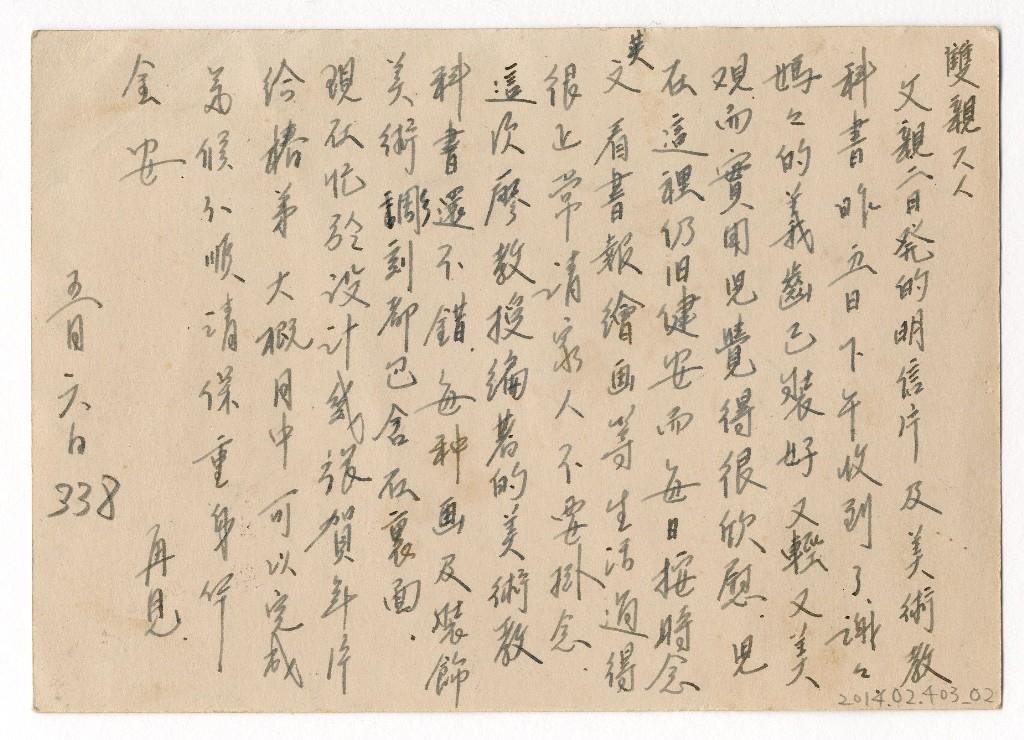 雙親大人
父親二日発的明信片及美術教
科書昨五日下午收到了謝々
媽々的義齒已裝好又輕又美
观而實用児覺得很欣慰.児
在這裡仍旧健安而每日按時念
英文看書報繪画等生活過得
很上常請家人不要掛念.
這次廖教授編著的美術教
科書還不錯.每种画及裝飾
美術雕刻都已含在裏面.
現在忙於设计幾張賀年片
给椿弟大概月中可以完成
気候不順請保重身体
金安
再見.
五月六日
338
2014.02.403_02